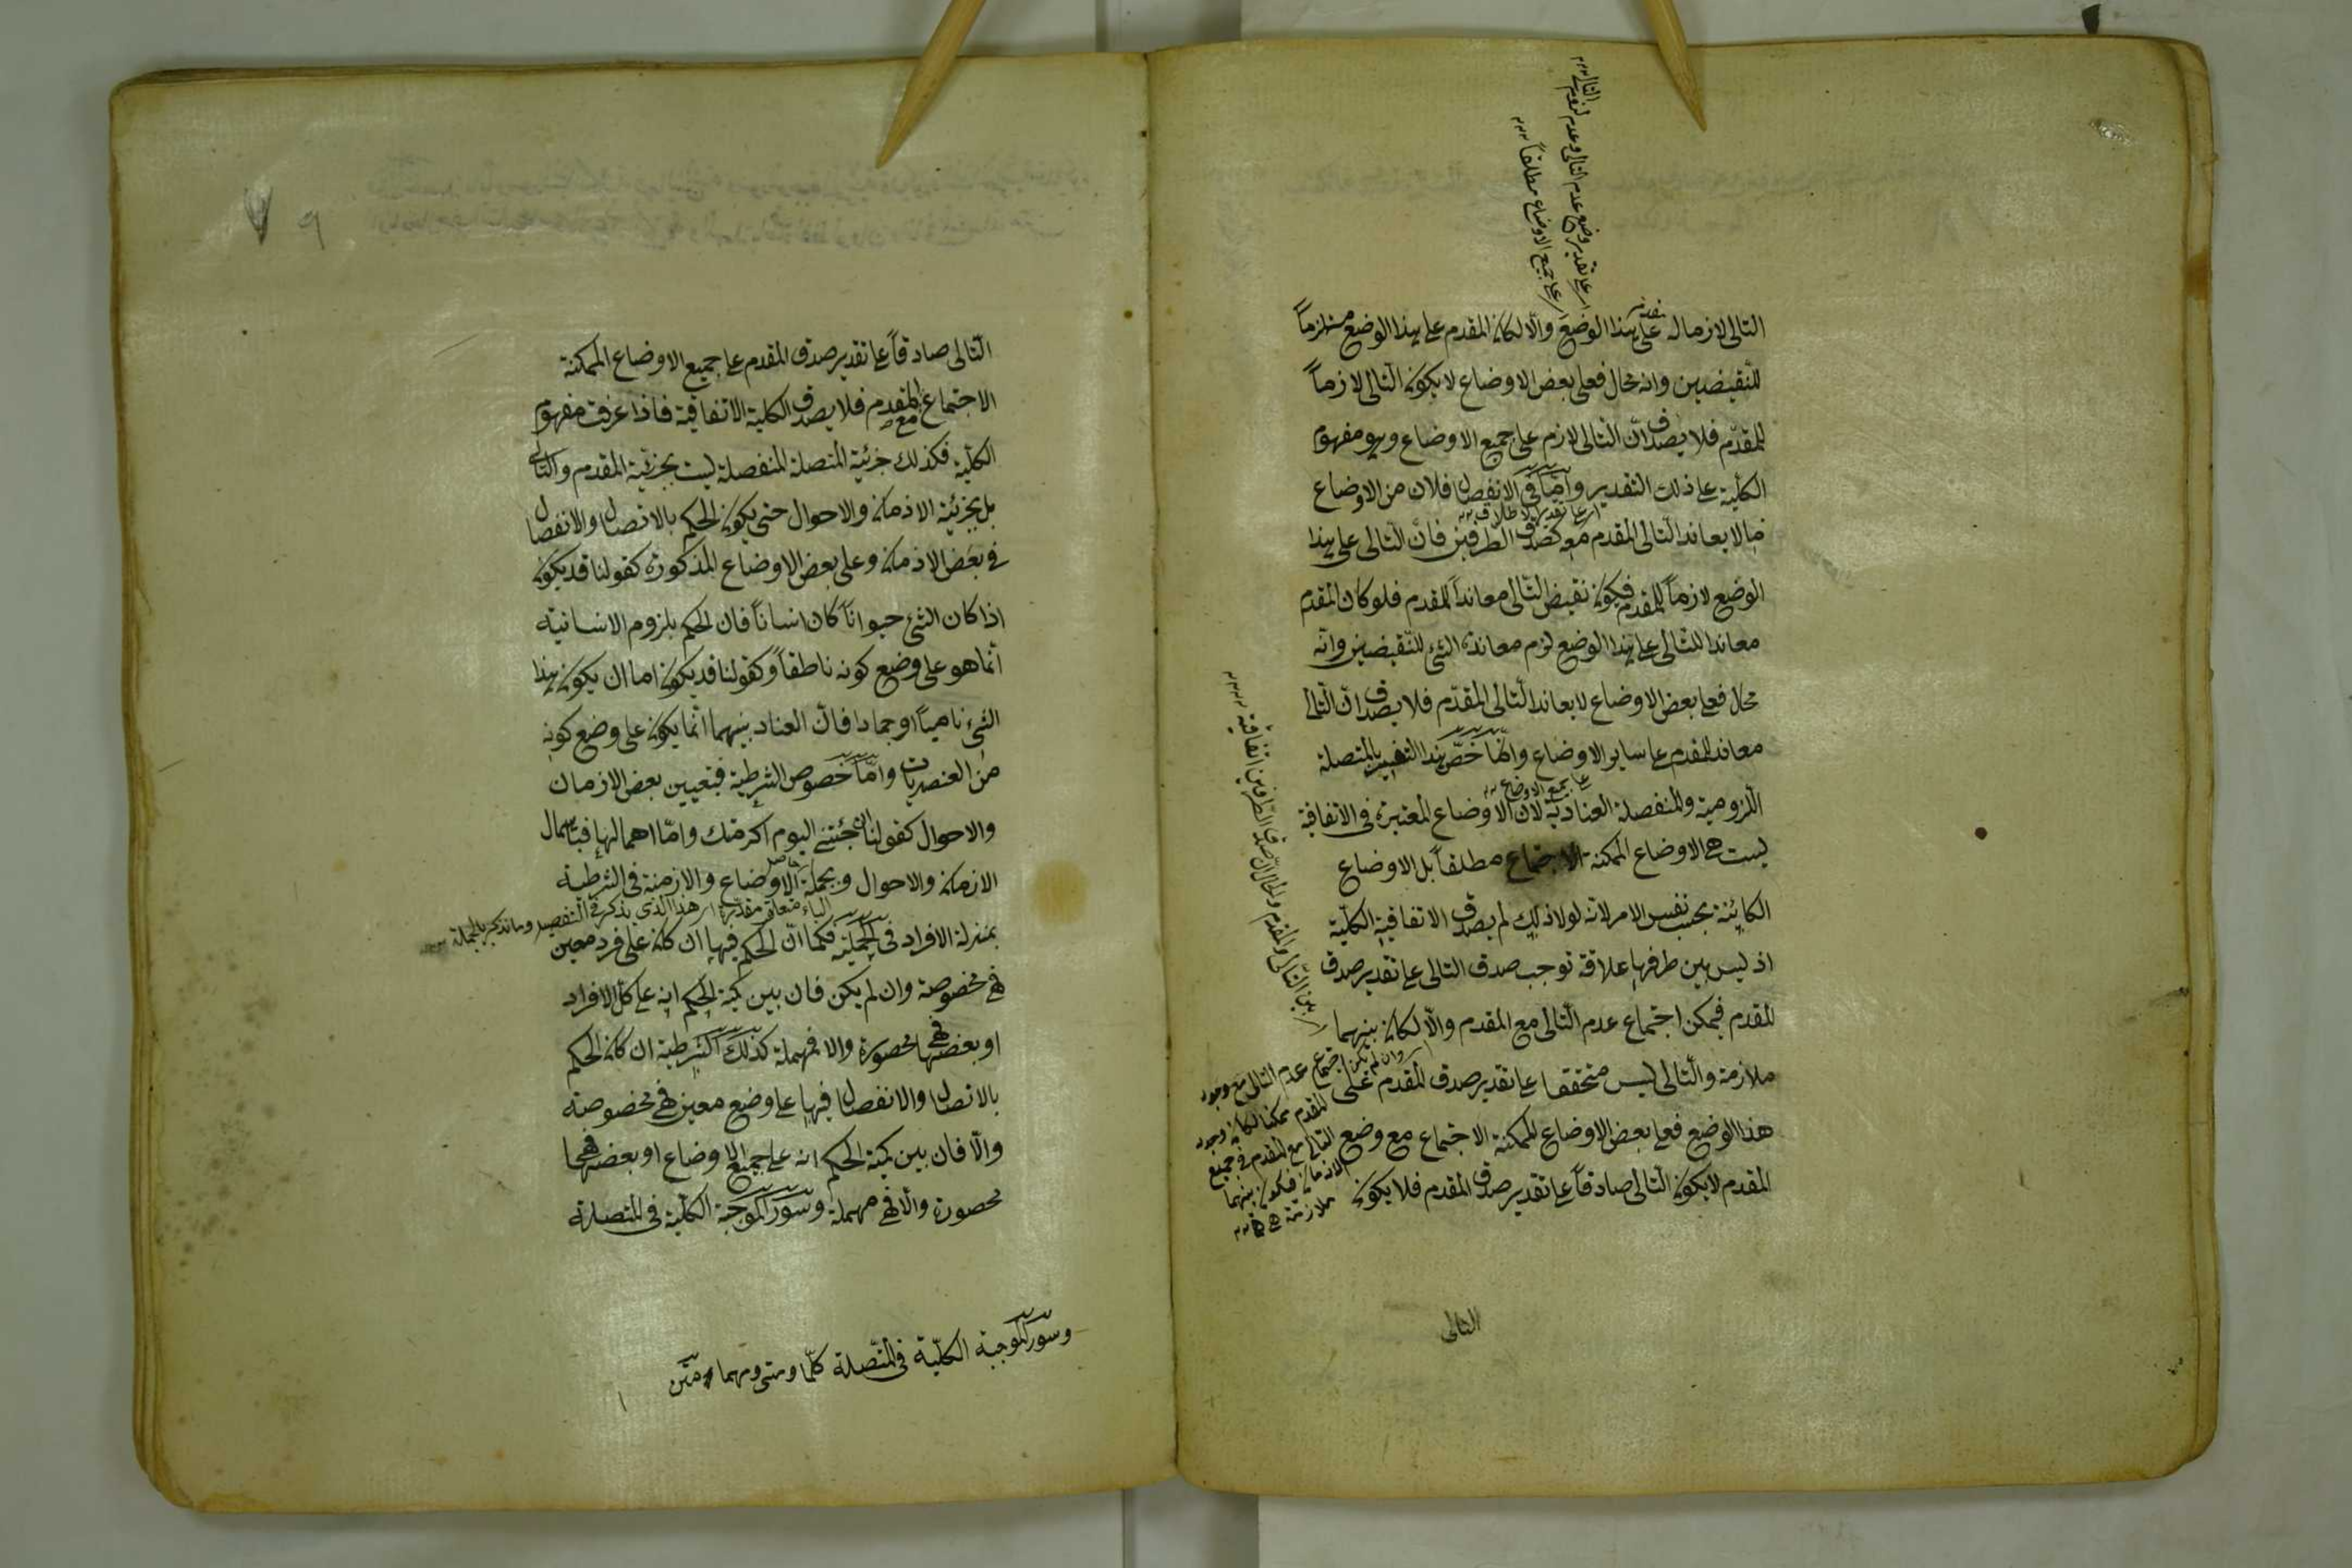 التالى لازما له على هذا الوضع والّا لكان المقدم على هذا الوضع مستلزماً
للنّقيضين وانه محال فعلى بعض الاوضاع لا يكون التالى لازماً
للمقدّم فلا يصدق انّ التالى لازم على جميع الاوضاع وهو مفهوم
الكلّية على ذلك التقدير وامّا فى الانفصال فلان من الاوضاع
ما لا يعاند التالى المقدم معه كصدق الطرفين فانّ التالى على هذا
الوضع لازماً للمقدم فيكون نقيض التالى معانداً للمقدم فلو كان المقدم
معاندا للتالى على هذا الوضع لزم معاندة الشئ للنّقيضين وانّه
محال فعلى بعض الاوضاع لا يعاند التالى المقدّم فلا يصدق انّ التالى
معاند للمقدم على ساير الاوضاع وانّما خصّ هذا التفسير بالمتصلة
اللزومية والمنفصلة العنادية لانّ الاوضاع المعتبرة فى الاتفاقية
ليست هى الاوضاع الممكنة الاجتماع مطلقاً بل الاوضاع
الكائنة بحسب نفس الامر لانّه لولا ذلك لم يصدق الاتفاقية الكلّية
اذ ليس بين طرفيها علاقة توجب صدق التالى على تقدير صدق
المقدم فيمكن اجتماع عدم التالى مع المقدم والّا لكان بينهما
ملازمة والتالى ليس متحققا على تقدير صدق المقدم على
هذا الوضع فعلى بعض الاوضاع الممكنة الاجتماع مع وضع
المقدم لا يكون التالى صادقاً على تقدير صدق المقدم فلا يكون
التالى
اى على تقدير وضع عدم التالى وعدم لزوم التالى
اى على جميع الاوضاع مطلقاً
اى على تقدير الاطلاق
على جميع الاوضاع
اى بين التالى والمقدم والحال انّ صدق الطرفين اتفاقية
اى وان لم يكن اجتماع عدم التالى مع وجود
المقدم ممكنا لكان وجود
التالى مع المقدم فى جميع
الازمان فيكون بينهما
ملازمة
٩
التّالى صادقاً على تقدير صدق المقدم على جميع الاوضاع الممكنة
الاجتماع مع المقدم فلا يصدق الكلية الاتفاقية فاذا عرفت مفهوم
الكلّية فكذلك جزئية المتصلة المنفصلة ليست بجزئية المقدم والتالى
بل بجزئية الازمان والاحوال حتى يكون الحكم بالاتصال والانفصال
فى بعض الازمان وعلى بعض الاوضاع المذكورة كقولنا قد يكون
اذا كان الشئ حيواناً كان انساناً فان الحكم بلزوم الانسانية
انّما هو على وضع كونه ناطقاً وكقولنا قد يكون اما ان يكون هذا
الشئ ناميا او جمادا فانّ العناد بينهما انّما يكون على وضع كونه
من العنصريات وامّا خصوص الشرطية فبتعيين بعض الازمان
والاحوال كقولنا ان جئتنى اليوم اكرمتك وامّا اهمالها فباهمال
الازمان والاحوال وبجملة الاوضاع والازمنة فى الشرطية
بمنزلة الافراد فى الحملية فكما انّ الحكم فيها ان كان على فرد معين
فهى مخصوصة وان لم يكن فان بين كمية الحكم انه على كل الافراد
او بعضها فهى محصورة والا فمهملة كذلك الشرطية ان كان الحكم
بالاتصال والانفصال فيها على وضع معين فهى مخصوصة
والّا فان بين كمية الحكم انه على جميع الاوضاع او بعضها فهى
محصورة والّا فهى مهملة وسور الموجبة الكلّية فى المتصلة
حاصل
الباء متعلق بمقدر اى هذا الذى يذكر فى التفصيل وما نذكر بالجملة
وسور الموجبة الكلّية فى المتّصلة كلّما ومتى ومهما متن